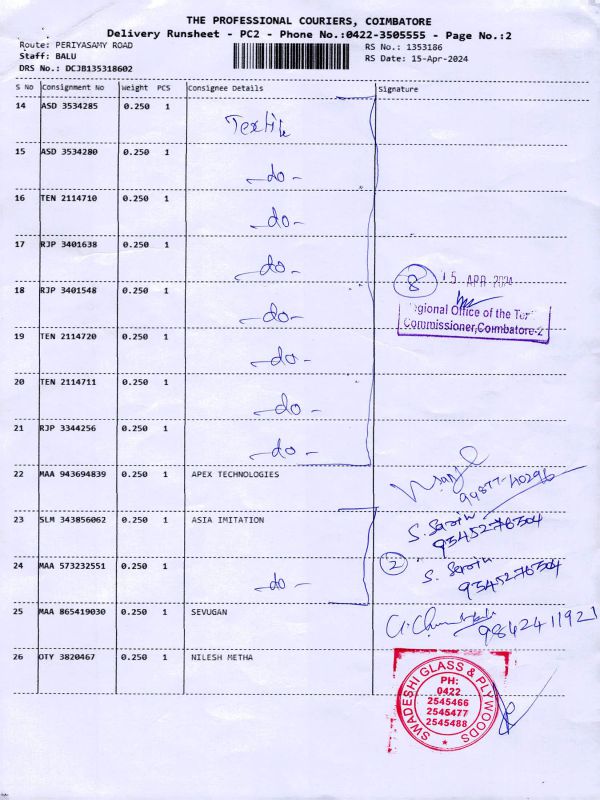 THE PROFESSIONAL COURIERS, COIMBATORE
Delivery Runsheet - PC2 - Phone No.:0422-3505555 - Page No.:2
Route: PERIYASAMY ROAD
Staff: BALU
DRS No.: DCJB135318602
RS No.: 1353186
RS Date: 15-Apr-2024
S No Consignment No Weight PCS Consignee Details Signature
14 ASD 3534285 0.250 1 Textile
15 ASD 3534280 0.250 1 -do-
16 TEN 2114710 0.250 1 -do-
17 RJP 3401638 0.250 1 -do-
8 15 APR 2024
18 RJP 3401548 0.250 1 -do-
egional Office of the Tex
Commissioner,Coimbatore-2
19 TEN 2114720 0.250 1 -do-
20 TEN 2114711 0.250 1 -do-
21 RJP 3344256 0.250 1 -do-
22 MAA 943694839 0.250 1 APEX TECHNOLOGIES
23 SLM 343856062 0.250 1 ASIA IMITATION S. Sarin
9345276304
24 MAA 573232551 0.250 1 -do- 2 S. Sarin
9345276304
25 MAA 865419030 0.250 1 SEVUGAN 9842411921
26 OTY 3820467 0.250 1 NILESH METHA
SWADESHI GLASS & PLYWOODS
PH:
0422
2545466
2545477
2545488